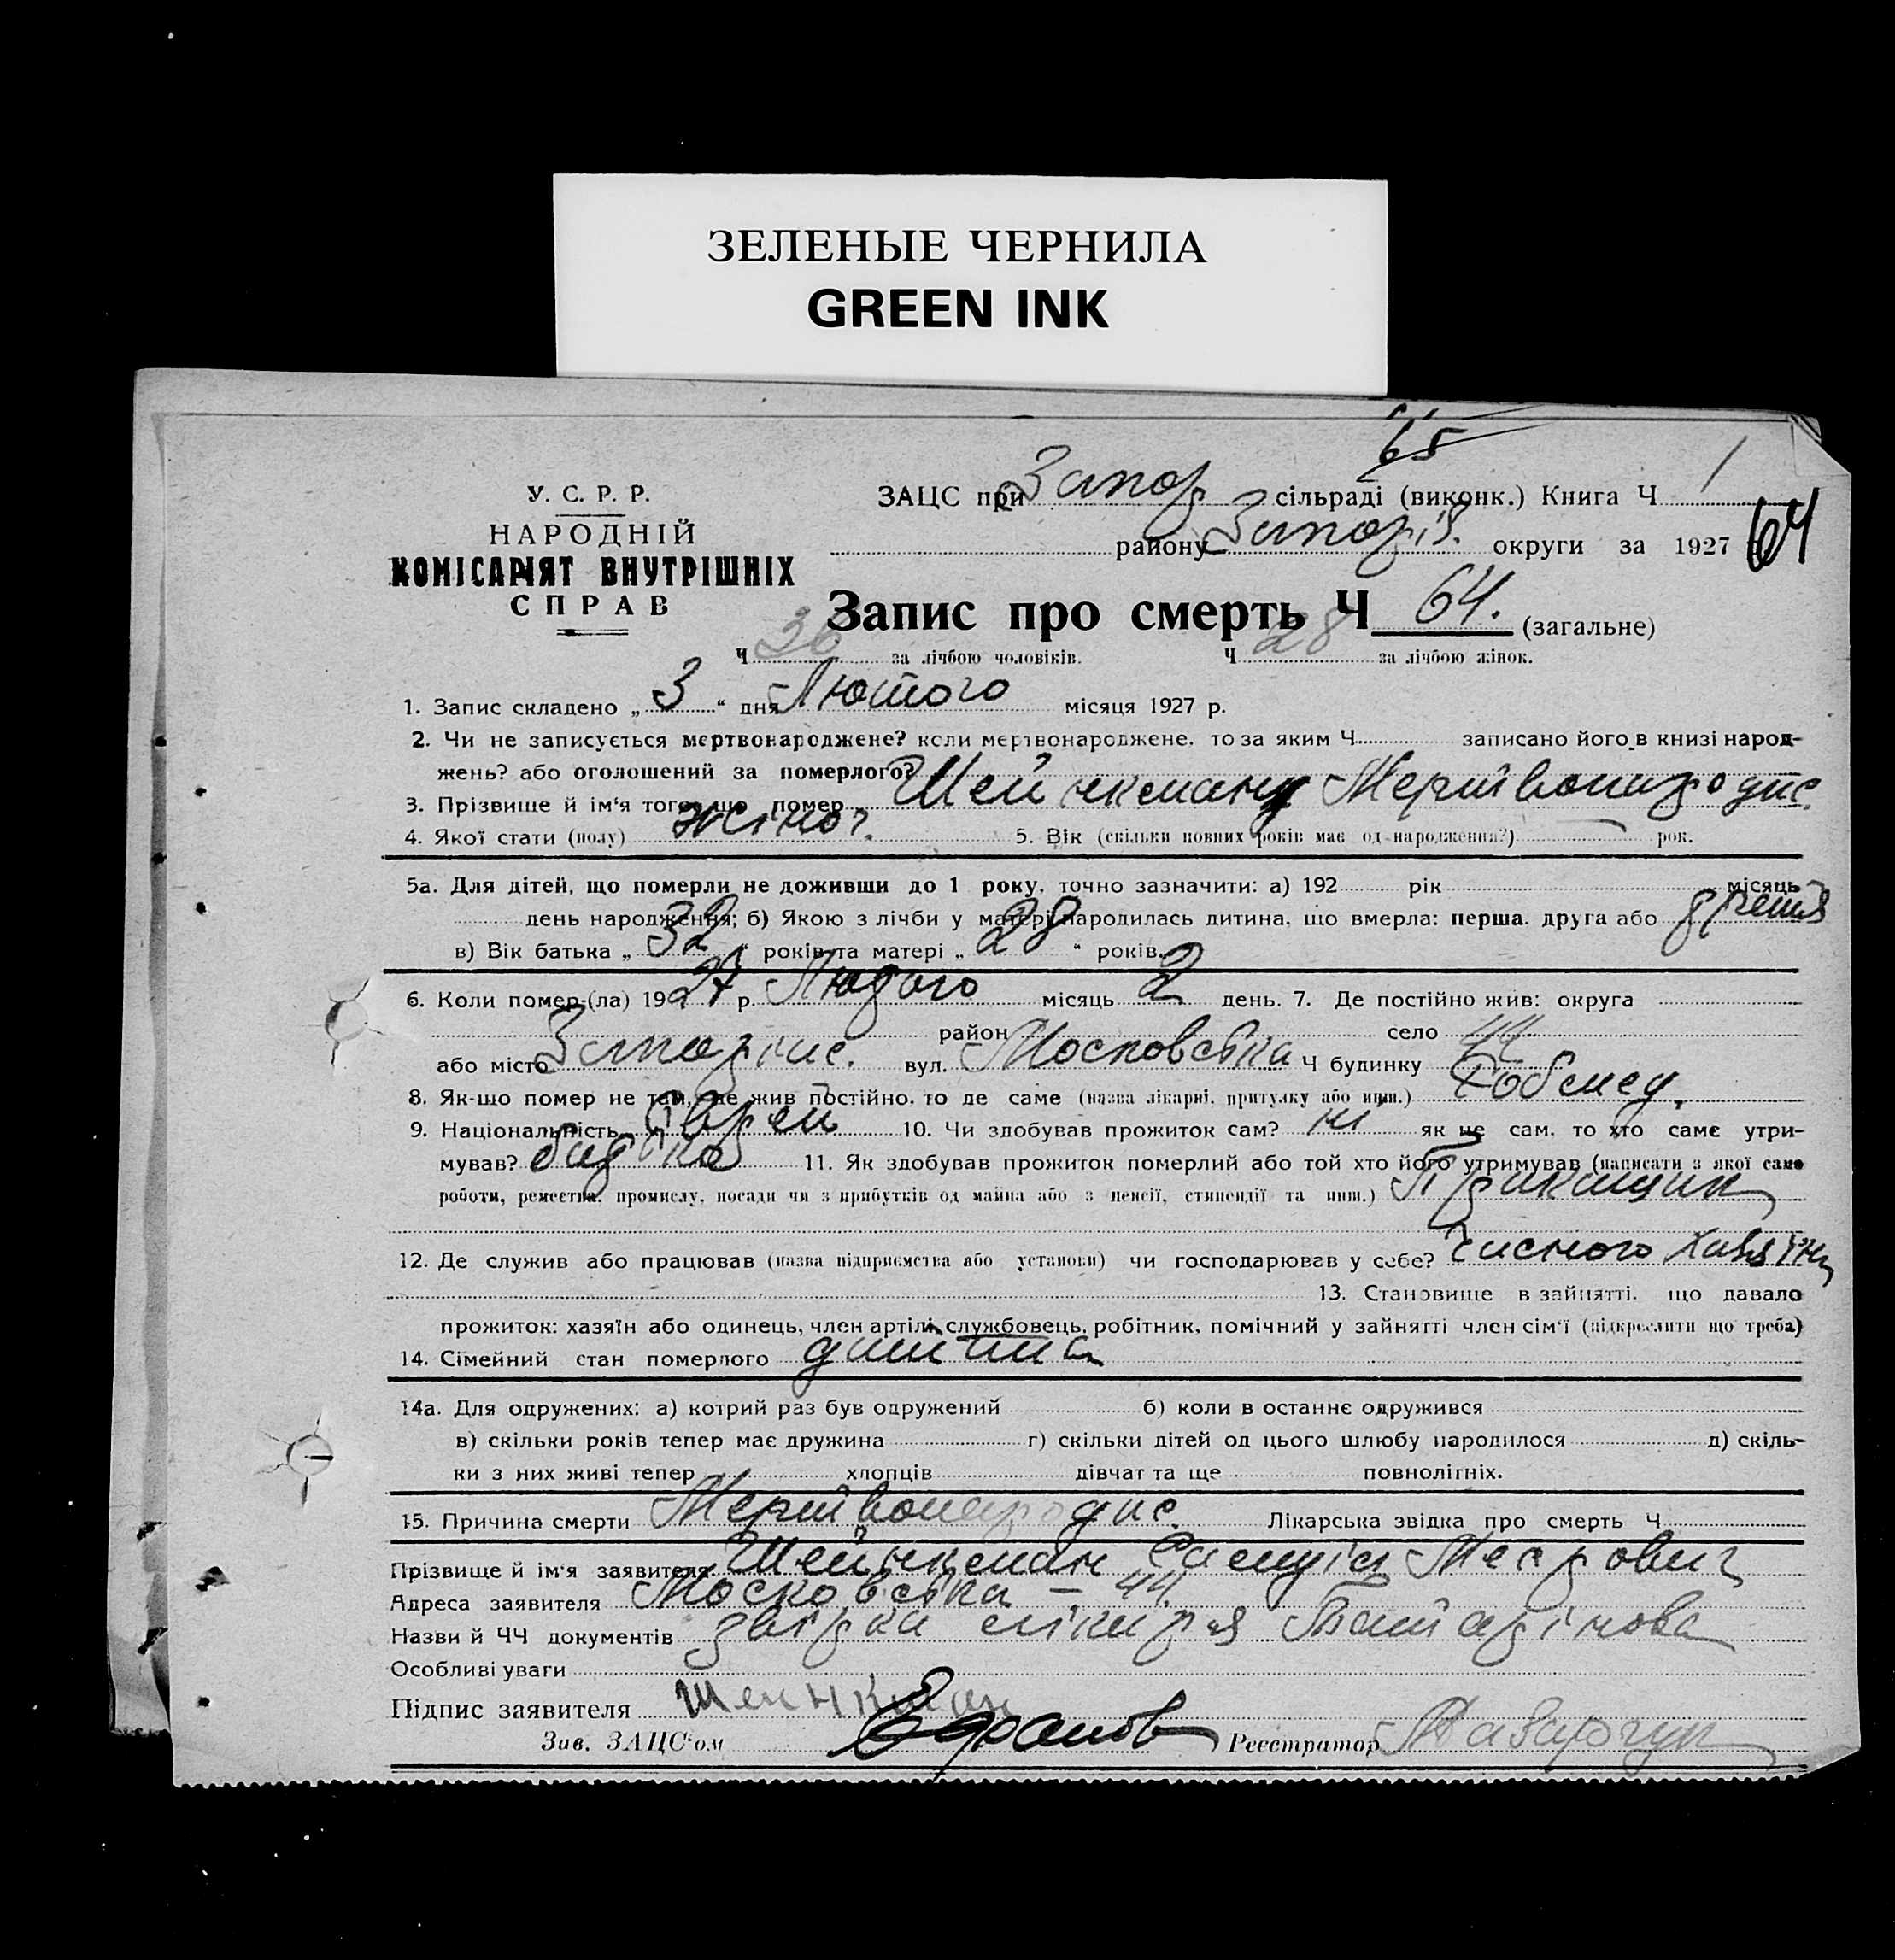 ЗЕЛЕНЫЕ ЧЕРНИЛА
GREEN INK
65
У. С. Р. Р.
НАРОДНІЙ
КОМІСАРІЯТ ВНУТРІШНІХ
СПРАВ
ЗАЦС при Запор сільраді (виконк.) Книга Ч 1
району Запоріз. округи за 1927 64
Запис про смерть Ч 64. (загальне)
Ч 36 за лічбою чоловіків. Ч 28 за лічбою жінок.
1. Запис складено „ 3 “ дня Лютого місяця 1927 р.
2. Чи не записується мертвонароджене? коли мертвонароджене, то за яким Ч записано його в книзі народ-
жень? або оголошений за померлого?
3. Прізвище й ім'я того, що помер Шейнкман Мертвонародж.
4. Якої стати (полу) жіноч. 5. Вік (скільки повних років має од народження?) — рок.
5а. Для дітей, що померли не доживши до 1 року, точно зазначити: а) 192 рік місяць
день народження; б) Якою з лічби у матері народилась дитина, що вмерла: перша, друга або третя
в) Вік батька „ 32 “ років та матері „ 28 “ років.
6. Коли помер-(ла) 1927 р. Лютого місяць 2 день. 7. Де постійно жив: округа
район село
або місто Запоріж. вул. Московська Ч будинку 44
8. Як-що помер не там, де жив постійно, то де саме (назва лікарні, притулку або инш.)
9. Національність Єврей 10. Чи здобував прожиток сам? ні як не сам, то хто саме утри-
мував? батько 11. Як здобував прожиток померлий або той хто його утримував (написати з якої саме
роботи, ремества, промислу, посади чи з прибутків од майна або з пенсії, стипендії та инш.) Приказщик
12. Де служив або працював (назва підприємства або установи) чи господарював у себе?
13. Становище в зайнятті, що давало
прожиток: хазяїн або одинець, член артілі, службовець, робітник, помічний у зайнятті член сім'ї (підкреслити що треба)
14. Сімейний стан померлого дитина
14а. Для одружених: а) котрий раз був одружений б) коли в останнє одружився
в) скільки років тепер має дружина г) скільки дітей од цього шлюбу народилося д) скіль-
ки з них живі тепер хлопців дівчат та ще повнолітніх.
15. Причина смерти Мертвонародж. Лікарська звідка про смерть Ч
Прізвище й ім'я заявителя Шейнкман
Адреса заявителя Московська – 44.
Назви й ЧЧ документів лікаря
Особливі уваги
Підпис заявителя Шейнкман
Зав. ЗАЦС'ом Реєстратор